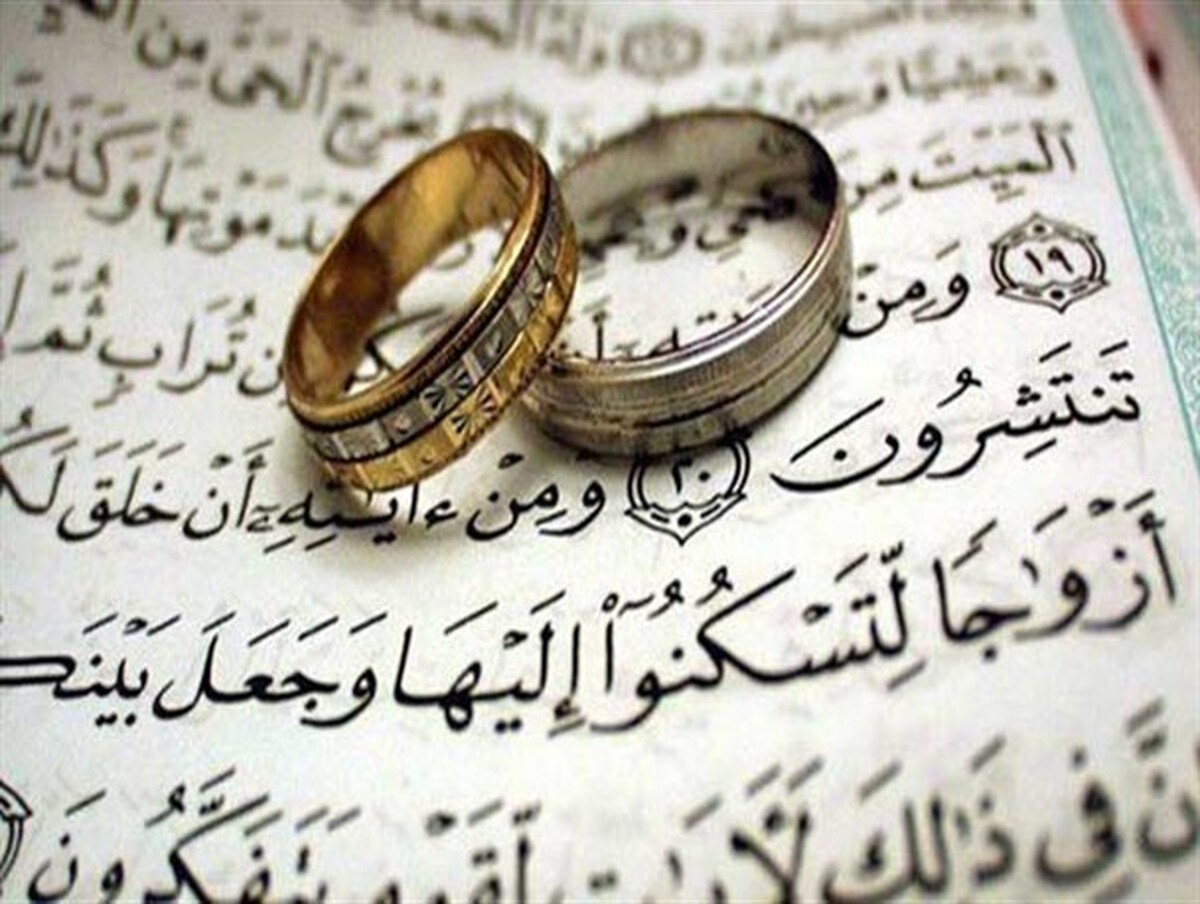 وَلَهُ
وَعَشِيًّا وَحِينَ يُخْرِجُ الْحَيَّ مِنَ
الْمَيِّتَ مِنَ مَوْتِهَا وَكَذَٰلِكَ
١٩ وَمِنْ تُرَابٍ ثُمَّ
تَنتَشِرُونَ ٢٠ وَمِنْ ءَايَٰتِهِۦٓ أَنْ خَلَقَ لَكُ
أَزْوَٰجًا لِّتَسْكُنُوٓا۟ إِلَيْهَا وَجَعَلَ بَيْنَكـ
نَّ فِى ذَٰلِكَ لَأَيَٰتٍ لِّقَوْمٍ يَتَفَكَّرُونَ